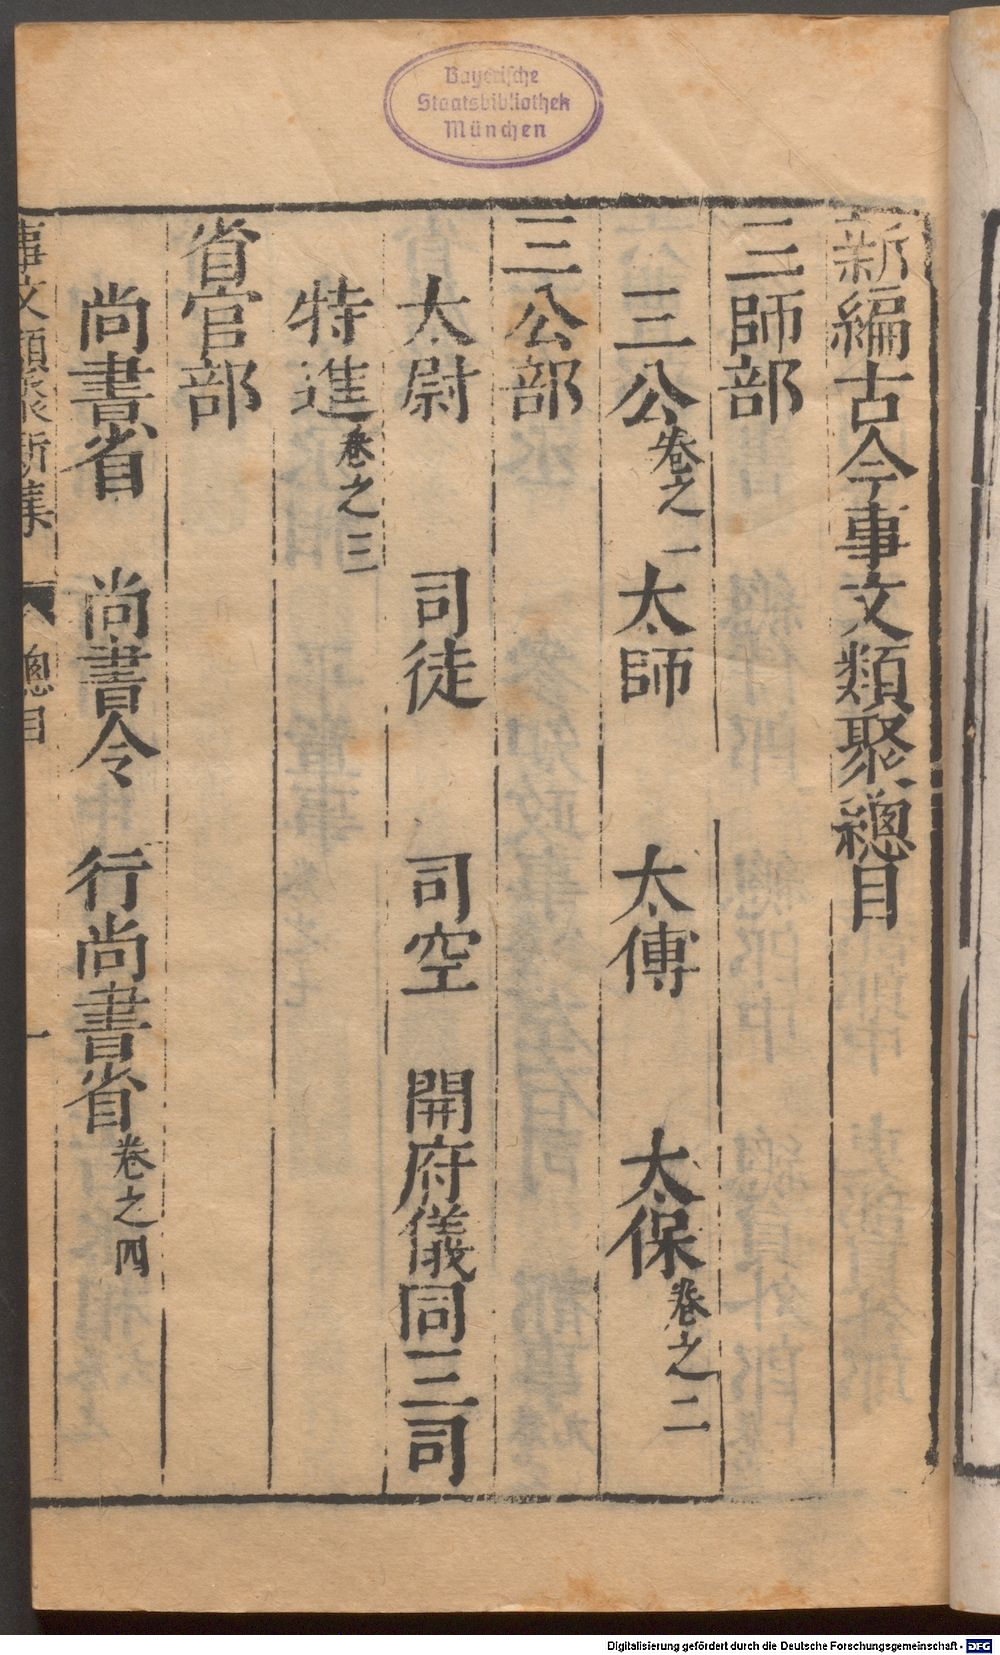 Bayerische
Staatsbibliothek
München
新編古今事文類聚總目
三師部
三公卷之一 太師 太傅 太保卷之二
三公部
太尉 司徒 司空 開府儀同三司
特進卷之三
省官部
尚書省 尚書令 行尚書省卷之四
事文類聚新集 總目 一
Digitalisierung gefördert durch die Deutsche Forschungsgemeinschaft - DFG